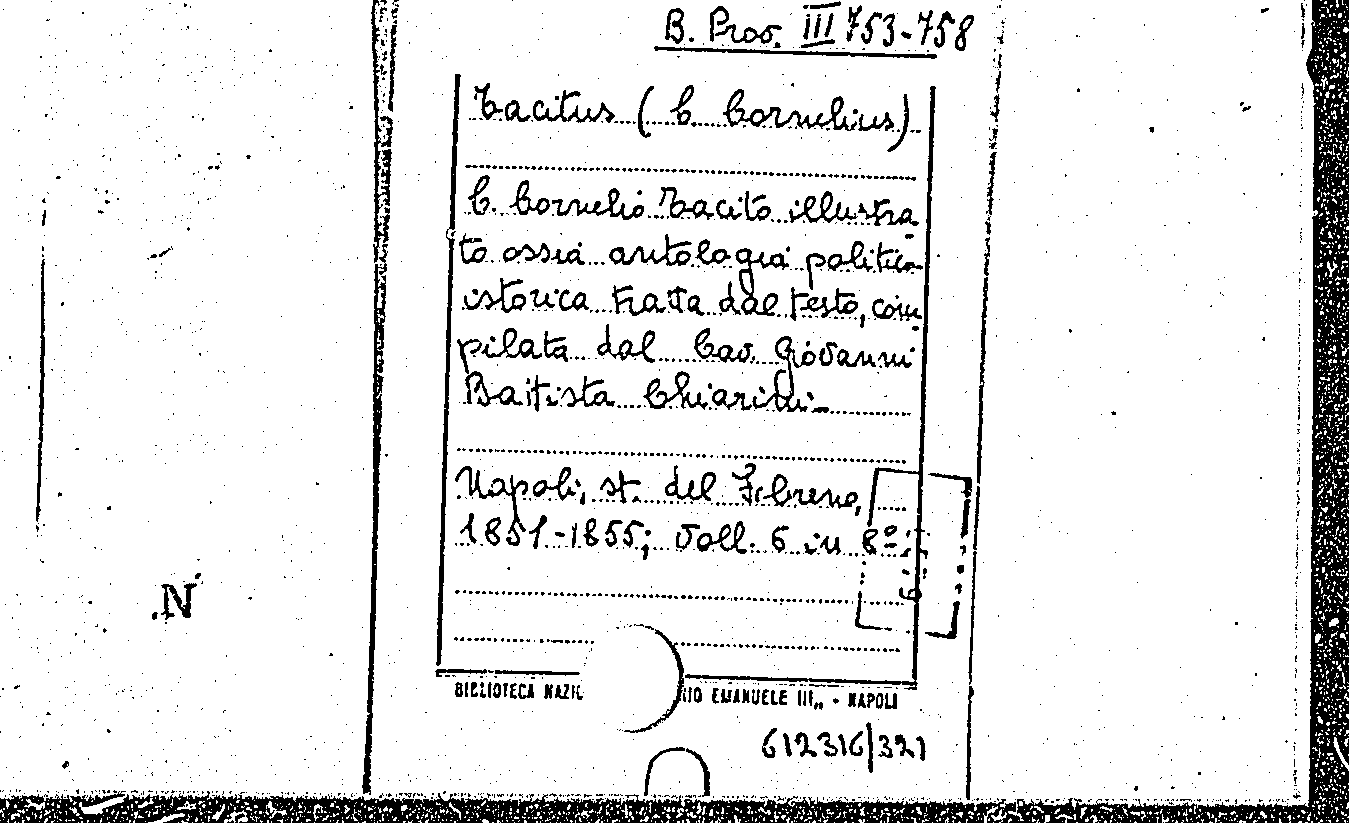 B. Prov. III 753-758
Tacitus (C. Cornelius)
C. Cornelio Tacito illustra
to ossia antologia politico
istorica tratta dal testo, com
pilata dal Cav. Giovanni
Battista Chiarini
Napoli, st. del Fibreno,
1851-1855; Voll. 6 in 8º
BIBLIOTECA NAZI IO EMANUELE III„ - NAPOLI
612316/321
N